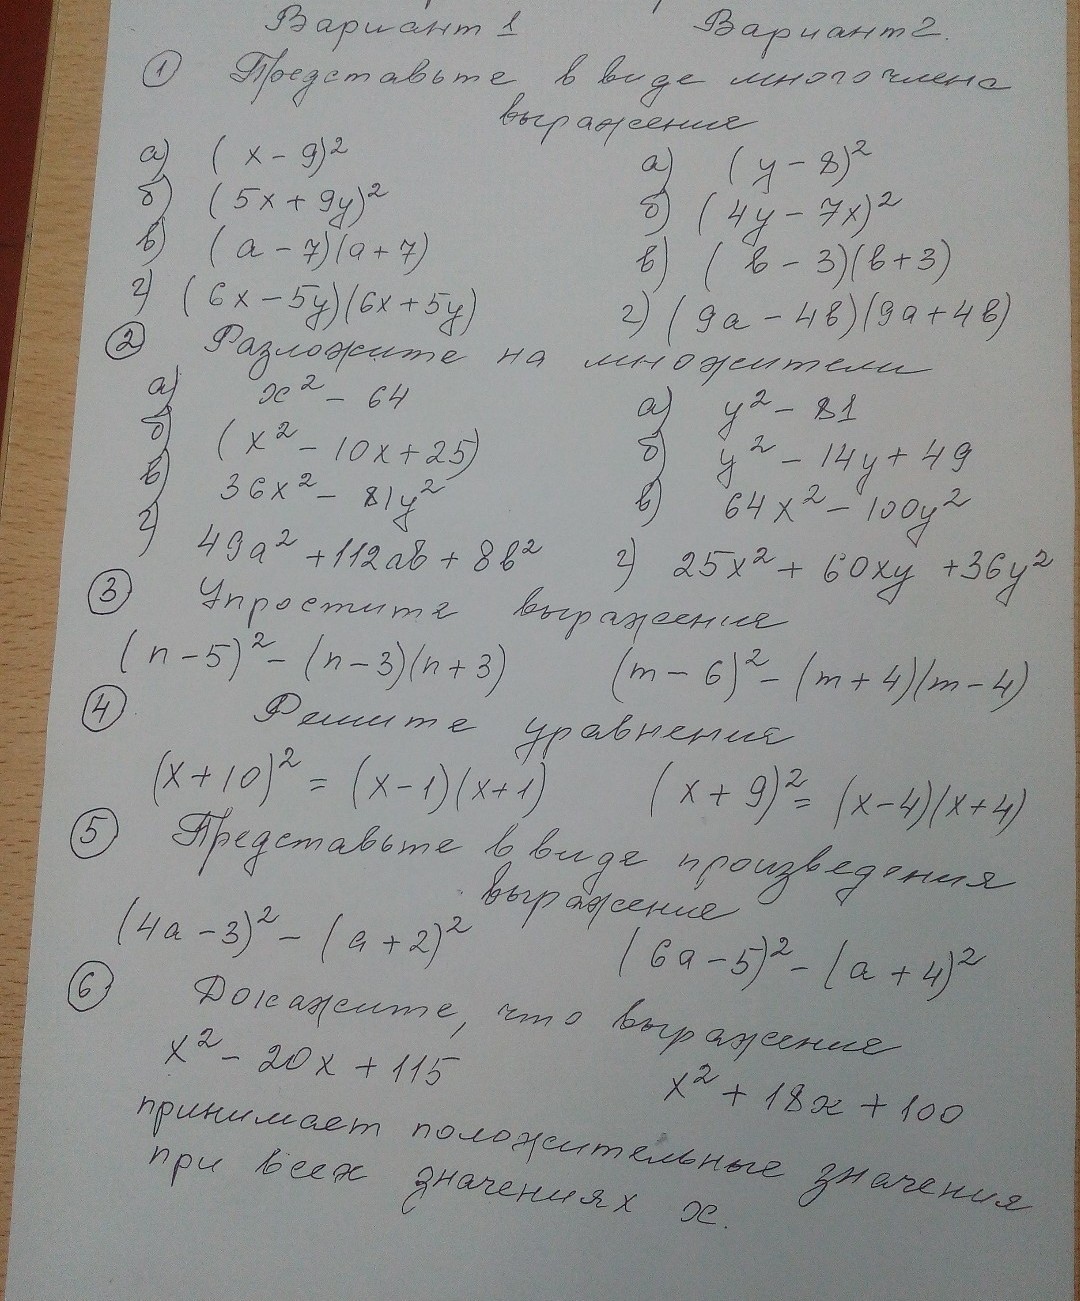 Вариант 1 Вариант 2.
① Представьте в виде многочлена
выражения
а) (x - 9)² а) (y - 8)²
б) (5x + 9y)² б) (4y - 7x)²
в) (a - 7)(a + 7) в) (в - 3)(в + 3)
г) (6x - 5y)(6x + 5y) г) (9a - 4в)(9a + 4в)
② Разложите на множители
а) x² - 64 а) y² - 81
б) (x² - 10x + 25) б) y² - 14y + 49
в) 36x² - 81y² в) 64x² - 100y²
г) 49a² + 112aв + 8в² г) 25x² + 60xy + 36y²
③ Упростите выражения
(n - 5)² - (n - 3)(n + 3) (m - 6)² - (m + 4)(m - 4)
④ Решите уравнения
(x + 10)² = (x - 1)(x + 1) (x + 9)² = (x - 4)(x + 4)
⑤ Представьте в виде произведения
выражение
(4a - 3)² - (a + 2)² (6a - 5)² - (a + 4)²
⑥ Докажите, что выражение
x² - 20x + 115 x² + 18x + 100
принимает положительные значения
при всех значениях x.